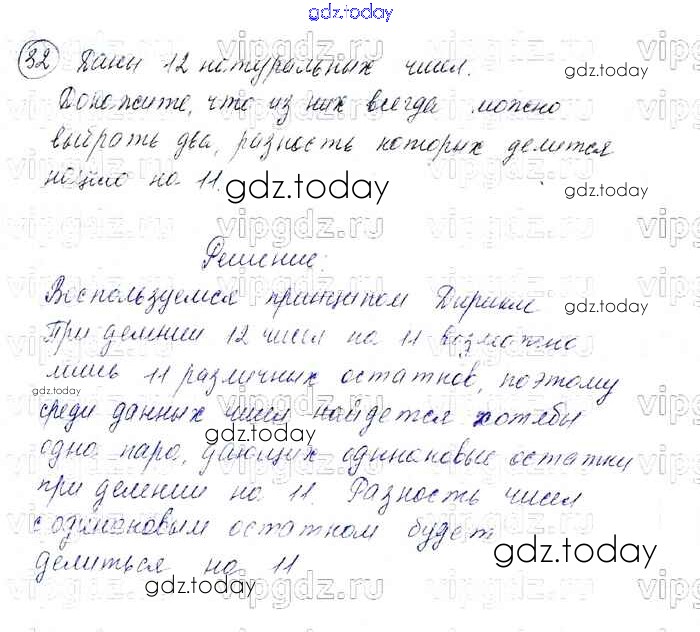 gdz.today
32 Даны 12 натуральных чисел.
gdz.today
Докажите, что из них всегда можно
выбрать два, разность которых делится
нацело на 11.
gdz.today
Решение:
Воспользуемся принципом Дирихле
gdz.today
При делении 12 чисел на 11 возможно
лишь 11 различных остатков, поэтому
gdz.today
среди данных чисел найдется хотябы
gdz.today
одна пара, дающих одинаковые остатки
при делении на 11. Разность чисел
с одинаковым остатком будет
gdz.today
делиться на 11
gdz.today
vipgdz.ru